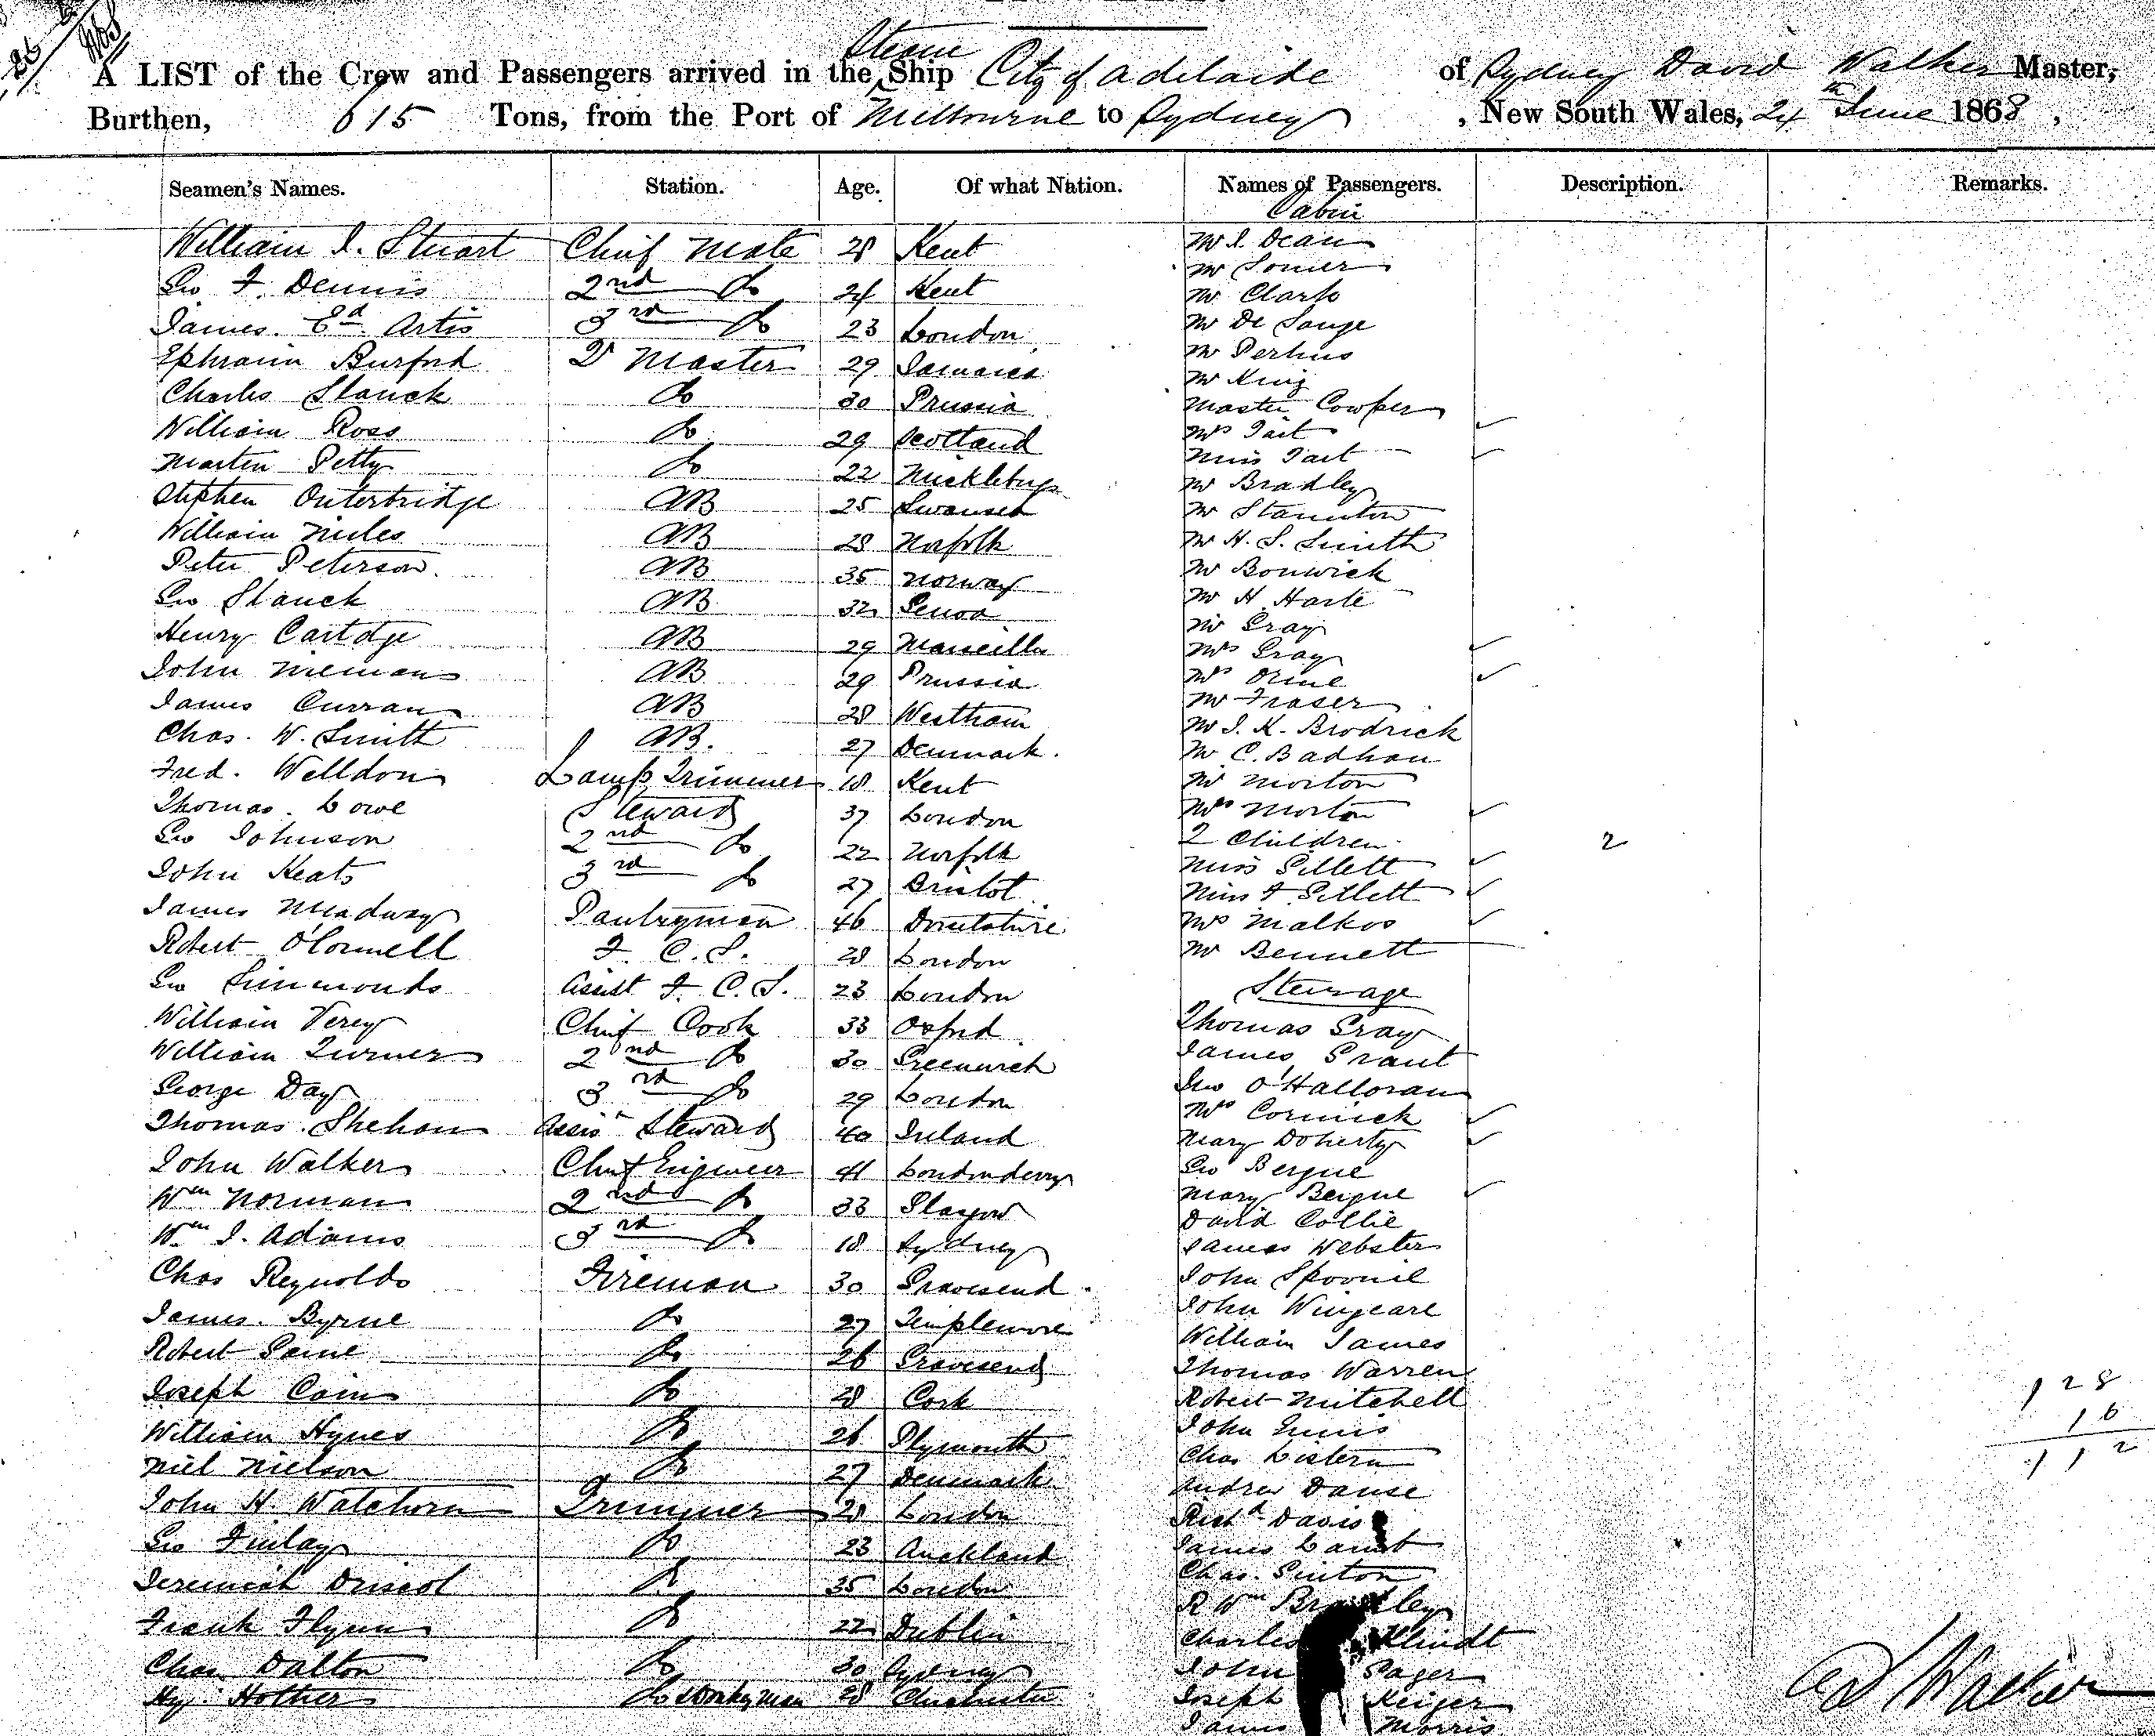 Steam
A LIST of the Crew and Passengers arrived in the Ship City of Adelaide of Sydney David Walker Master,
Burthen, 615 Tons, from the Port of Melbourne to Sydney, New South Wales, 24th June 1868,
Seamen's Names. Station. Age. Of what Nation. Names of Passengers. Description. Remarks.
Cabin
William J. Stuart Chief Mate 28 Kent
Geo F. Dennis 2nd Do 24 Kent
James Ed. Artis 3rd Do 23 London
Ephraim Burford Qr Master 29 Jamaica
Charles Stanck Do 30 Prussia
William Ross Do 29 Scotland
Martin Petty Do 22
Stephen Outerbridge AB 25 Swansea
William Miles AB 28 Norfolk
Peter Peterson AB 35 Norway
Geo Stanck AB 32 Genoa
Henry AB 29 Marseilles
John Nieman AB 29 Prussia
James Curran AB 28 Westham
Chas. W. Smith AB. 27 Denmark.
Fred. Welldon Lamp Trimmer 18 Kent
Thomas Lowe Steward 37 London
Geo Johnson 2nd Do 22 Norfolk
John Keats 3rd Do 27 Bristol
James Meadway Pantryman 46
Robert O'Connell F. C. S. 28 London
Geo Simmonds Assist F. C. S. 23 London
William Verey Chief Cook 33 Oxford
William Turner 2nd Do 30 Greenwich
George Day 3rd Do 29 London
Thomas Shehan Assist Steward 40 Ireland
John Walker Chief Engineer 41 Londonderry
Wm Norman 2nd Do 33 Glasgow
Wm J. Adams 3rd Do 18 Sydney
Chas Reynolds Fireman 30 Gravesend
James Byrne Do 27 Templemore
Robert Do 26 Gravesend
Joseph Cain Do 28 Cork
William Hynes Do 26 Plymouth
Niel Nielson Do 27 Denmark
John H. Watchorn Trimmer 28 London
Geo Finlay Do 23 Auckland
Jeremiah Driscol Do 35 London
Frank Flynn Do 22 Dublin
Chas Dalton Do 30 Sydney
Hy. Hother Do & Donkeyman 28 Chichester
Mr J. Dean
Mr
Mr Clark
Mr De Lange
Mr Perkins
Mr King
Master Cowper
Mrs Tait
Miss Tait
Mr Bradley
Mr Staunton
Mr H. S. Smith
Mr Bonwick
Mr H. Harte
Mr Gray
Mrs Gray
Mrs Orme
Mr Fraser
Mr J. K. Brodrick
Mr C. Badham
Mr Morton
Mrs Morton
2 Children 2
Miss Gillett
Miss F Gillett
Mrs Malkos
Mr Bennett
Steerage
Thomas Gray
James Grant
Jno O'Halloran
Mrs Cormick
Mary Doherty
Geo Bergue
Mary Bergue
David Collie
James Webster
John
John Wingeare
William James
Thomas Warren
Robert Mitchell
John Ennis
Chas Listern
Andrew Danse
Richd Davis
James Lamb
Chas. Sinton
R Wm
Charles Klindt
John Sager
Joseph Keiger
James Morris
128
16
112
D Walker